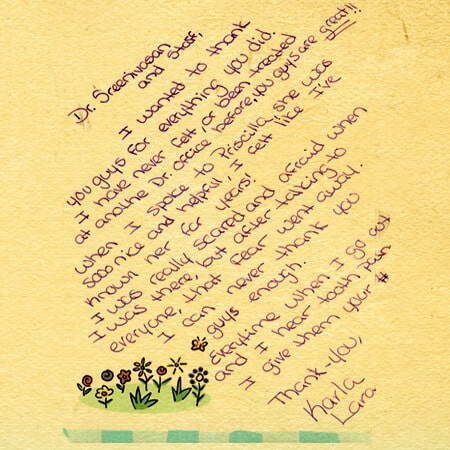 Dr. Sreenivasan
and Staff,
I wanted to thank
you guys for everything you did.
I have never felt, or been treated
at anothe Dr. office before, you guys are great!!
when I spoke to Priscilla she was
sooo nice and helpful, I felt like I've
known her for years!
I was really scared and afraid when
I was there, but after talking to
everyone, that fear went away.
I can never thank you
guys enough.
Everytime when I go out
and I hear tooth pain
I give them your #
Thank-you,
Karla
Lara